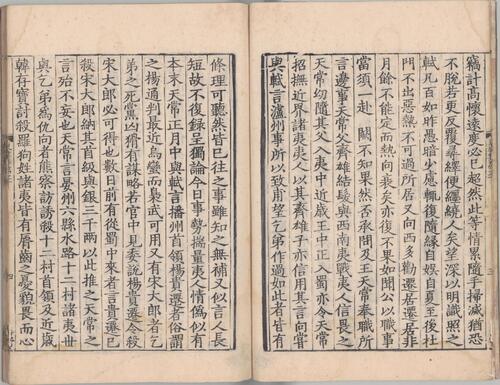 竊計高懷遠度必已超然此等情累隨手掃滅猶恐
不脫若更反覆尋繹便纏繞人矣望深以明識照之
軾凡百如昨愚暗少慮輒復隨緣自娛自夏至後杜
門不出惡熱不可過所居又向西多勸遷居遷居非
月餘不能定而熱向衰矣亦復不果如聞公以職事
當須一赴 闕不知果然否承問及王天常奉職所
言邊事天常父齊雄結髮與西南夷戰夷人信畏之
天常幼隨其父入夷中近歲王中正入蜀亦令天常
招撫近界諸夷夷人以其齊雄子亦信用其言向嘗
與軾言瀘州事所以致甫望乞弟作過如此者皆有
條理可聽然皆已往之事雖知之無補又似言人長
短故不復錄呈獨論今日事勢揣量夷人情偽似有
本末天常正月中與軾言播州首領楊貴遷者俗謂
之楊通判最近烏蠻而梟武可用又有宋大郎者乞
弟之死黨凶猾有謀略若官中見委說楊貴遷令殺
宋大郎必可得也數日前有從蜀中來者言貴遷已
殺宋大郎納其首級與銀三千兩以此推之天常之
言殆不妄也天常言晏州六縣水路十二村諸夷世
與乞弟為仇向者熊察訪誘殺十二村首領及近歲
韓存寶討殺羅狗姓諸夷皆有脣齒之憂貌畏而心
四